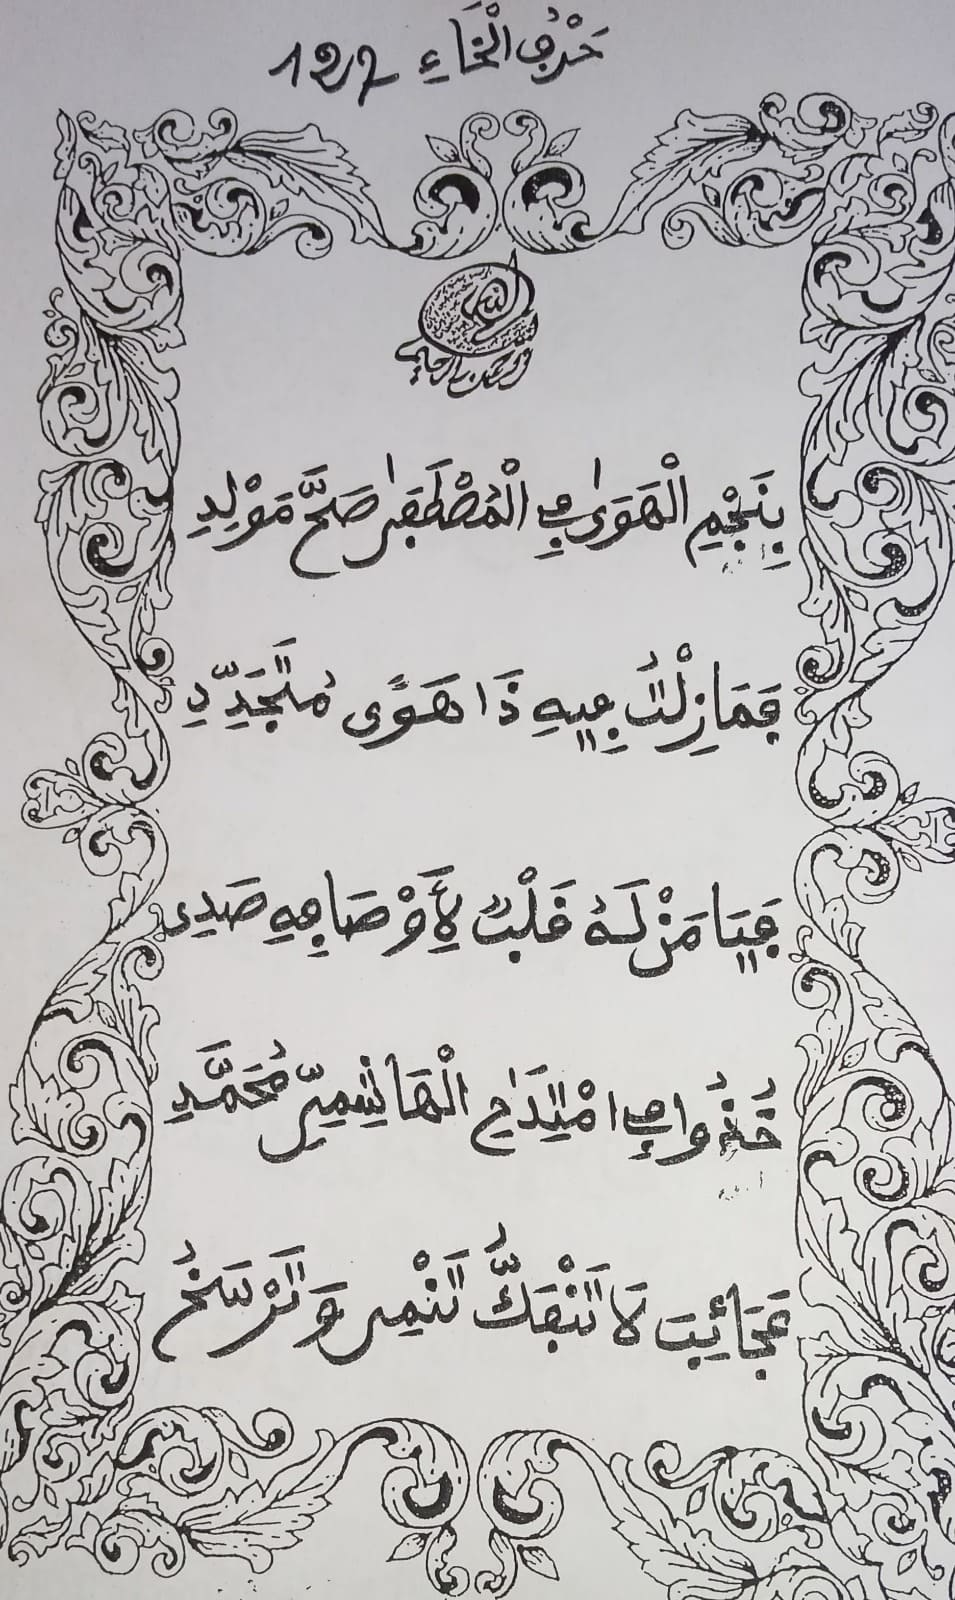 حَرْفُ الْخَاءِ 127
بِنَجْمِ الْهَوَىٰ فِي الْمُصْطَفَىٰ صَحَّ مَوْلِدِ
فَمَا زِلْتُ فِيهِ ذَا هَوًى مُتَجَدِّدِ
فَيَا مَنْ لَهُ قَلْبٌ لِأَوْصَافِهِ صَدِى
خُذُوا فِي امْتِدَاحِ الْهَاشِمِيِّ مُحَمَّدِ
عَجَائِبَ لَا تَنْفَكُّ تَنْمِى وَتَرْسَخُ